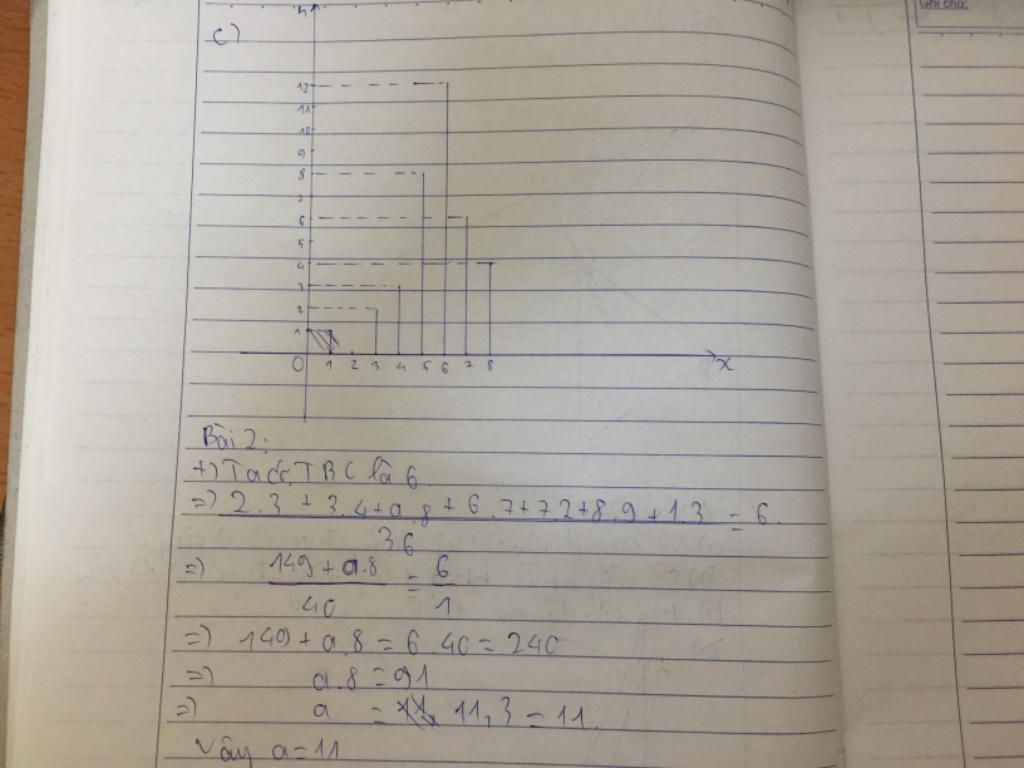 Ghi chú:
n
c)
12
11
10
9
8
7
6
5
4
3
2
1
O 1 2 3 4 5 6 7 8 x
Bài 2:
+) Ta có: TBC là 6
=) 2.3 + 3.4 + a.8 + 6.7 + 7.2 + 8.9 + 1.3 = 6.
36
=) 149 + a.8 = 6
40 1
=) 149 + a.8 = 6.40 = 240
=) a.8 = 91
=) a = 11,3 = 11.
Vậy a = 11